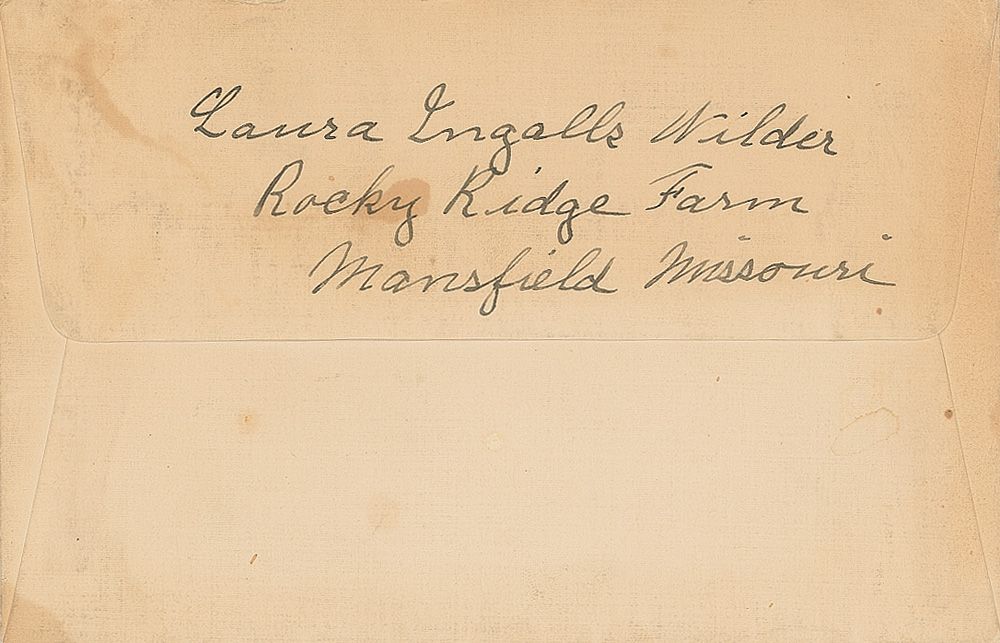 Laura Ingalls Wilder
Rocky Ridge Farm
Mansfield Missouri